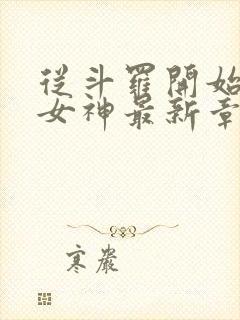 從斗羅開始
女神最新章
寒嚴